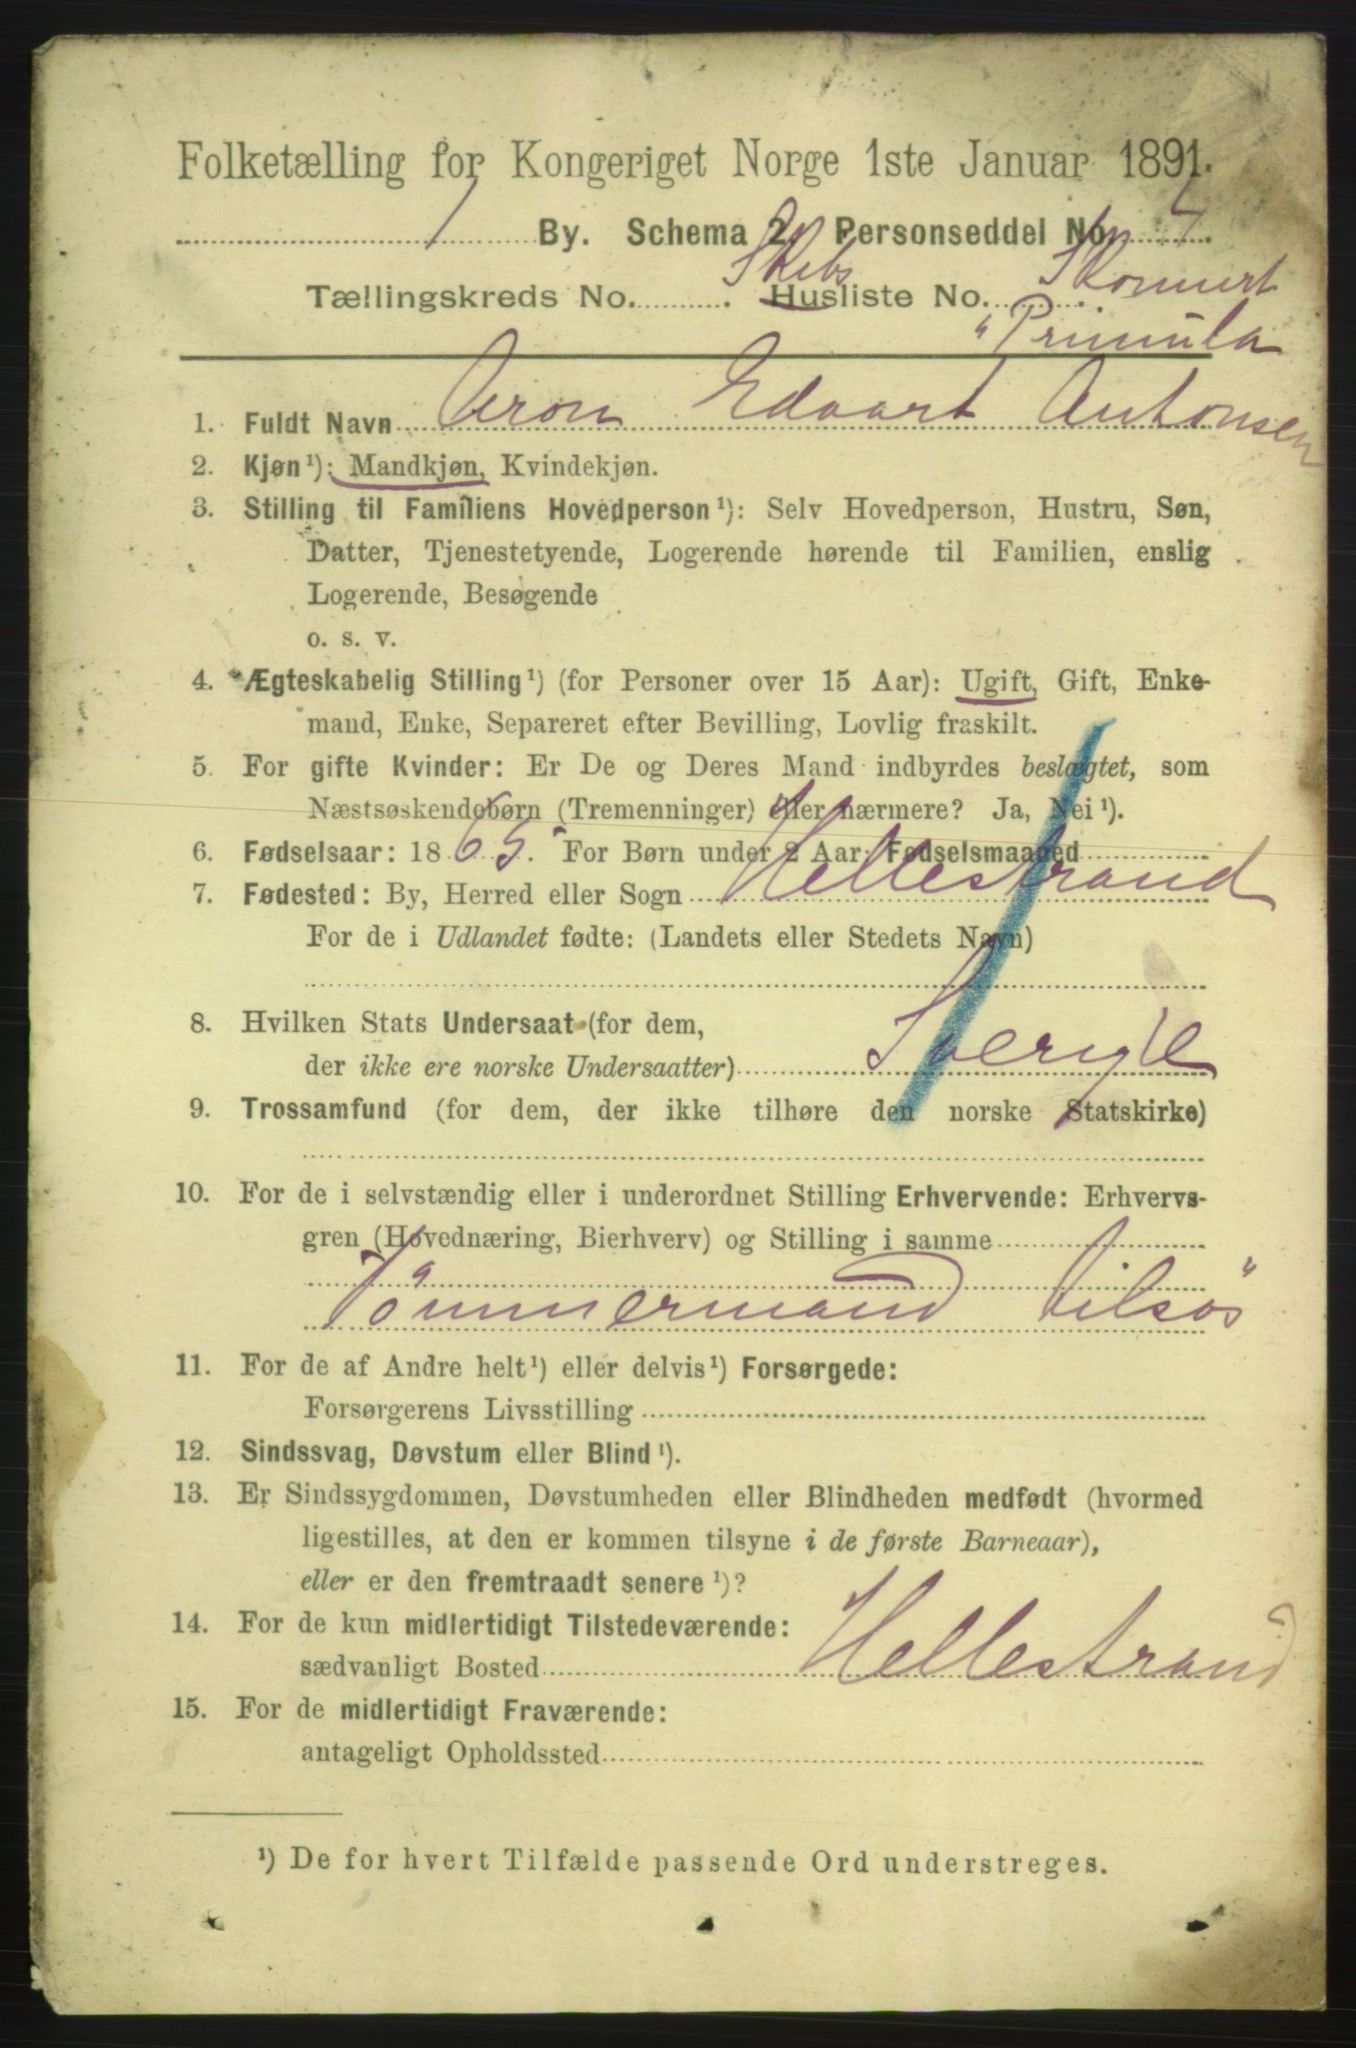 Folketælling for Kongeriget Norge 1ste Januar 1891.
By. Schema 2. Personseddel No. 4.
Skibs Skonnert
Tællingskreds No. Husliste No.
"Primula
1. Fuldt Navn Aron Edvart Antonsen
2. Kjøn¹): Mandkjøn, Kvindekjøn.
3. Stilling til Familiens Hovedperson¹): Selv Hovedperson, Hustru, Søn,
Datter, Tjenestetyende, Logerende hørende til Familien, enslig
Logerende, Besøgende
o. s. v.
4. Ægteskabelig Stilling¹) (for Personer over 15 Aar): Ugift, Gift, Enke-
mand, Enke, Separeret efter Bevilling, Lovlig fraskilt.
5. For gifte Kvinder: Er De og Deres Mand indbyrdes beslægtet, som
Næstsøskendebørn (Tremenninger) eller nærmere? Ja, Nei¹).
6. Fødselsaar: 1865. For Børn under 2 Aar: Fødselsmaaned
7. Fødested: By, Herred eller Sogn Hellestrand
For de i Udlandet fødte: (Landets eller Stedets Navn)
8. Hvilken Stats Undersaat (for dem,
der ikke ere norske Undersaatter) Sverige
9. Trossamfund (for dem, der ikke tilhøre den norske Statskirke)
10. For de i selvstændig eller i underordnet Stilling Erhvervende: Erhvervs-
gren (Hovednæring, Bierhverv) og Stilling i samme
Tømmermand tilsøs
11. For de af Andre helt¹) eller delvis¹) Forsørgede:
Forsørgerens Livsstilling
12. Sindssvag, Døvstum eller Blind¹).
13. Er Sindssygdommen, Døvstumheden eller Blindheden medfødt (hvormed
ligestilles, at den er kommen tilsyne i de første Barneaar),
eller er den fremtraadt senere¹)?
14. For de kun midlertidigt Tilstedeværende:
sædvanligt Bosted Hellestrand
15. For de midlertidigt Fraværende:
antageligt Opholdssted
¹) De for hvert Tilfælde passende Ord understreges.